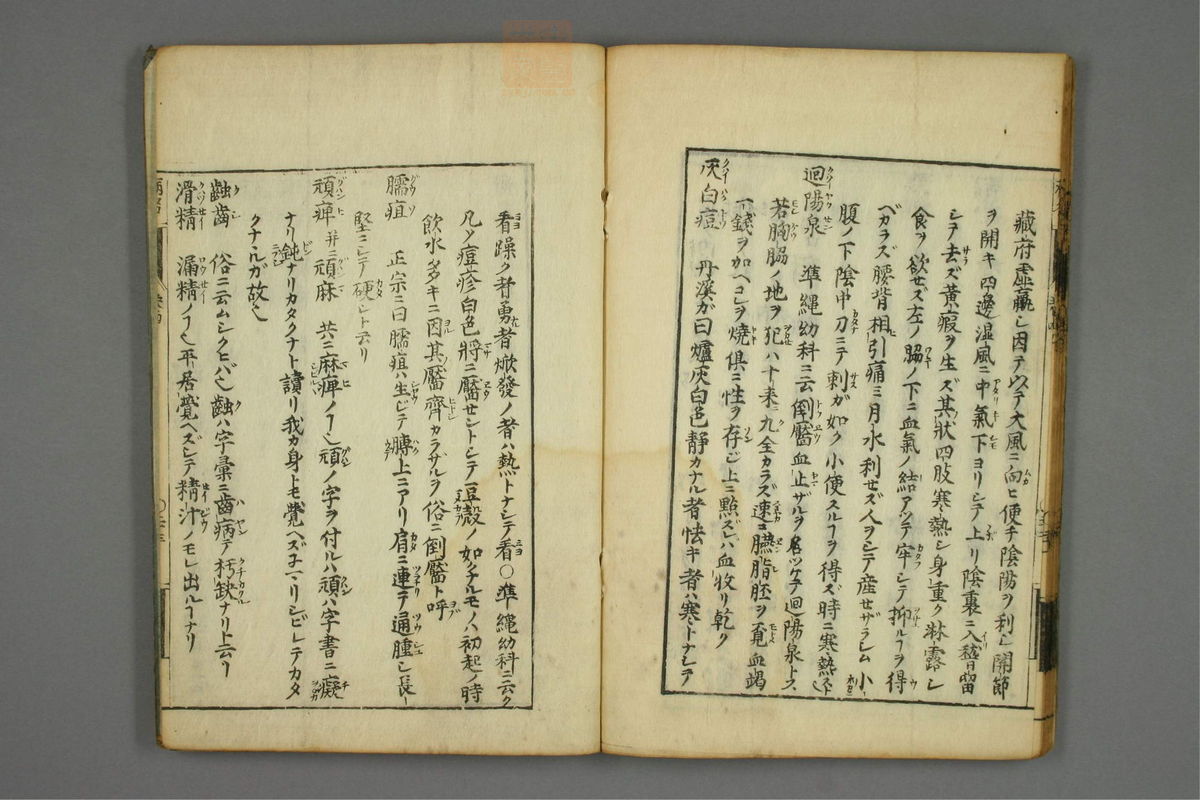 藏府虛羸シ因テ以テ大風ニ向ヒ便チ陰陽ヲ利シ関節
ヲ開キ四邊湿風ニ中氣下ヨリシテ上リ陰裏ニ入稽留
シテ去ズ黄瘕ヲ生ズ其狀四肢寒熱シ身重ク淋露シ
食ヲ欲セズ左ノ脇ノ下ニ血氣ノ結アツテ牢シテ抑ルフヲ得
ベカラズ腰背相引痛ミ月水利セズ人ヲシテ産セザラシム小
腹ノ下陰中刀ニテ刺が如ク小便スルフヲ得ズ時ニ寒熱スト
迴陽泉 準縄幼科ニ云倒靨血止ザルヲ名ツケテ迴陽泉トス
若胸脇ノ地ヲ犯ハ十来ニ九全カラズ速ニ臙脂胚ヲ覓血竭
一錢ヲ加ヘコレヲ焼倶ニ性ヲ存ジ上ニ點ズレバ血收リ乾ク
灰白痘 丹溪が曰爐灰白色静カナル者怯キ者ハ寒トナシテ
看躁ク者勇者焮發ノ者ハ熱トナシテ看〇準縄幼科ニ云ク
凡ソ痘疹白色將ニ靨セントシテ豆殻ノ如クナルモノハ初起ノ時
飲水多キニ因其靨齊カラザルヲ俗ニ倒靨ト呼
臑疽 正宗ニ曰臑疽ハ生ジテ膊上ニアリ肩ニ連テ通腫シ長ー
堅ニシテ硬シト云リ
頑痺并ニ頑麻 共ニ麻痺ノフ乀頑ノ字ヲ付ルハ頑ハ字書ニ癡
ナリ鈍ナリカタクナト讀リ我カ身トモ覺ヘズナマリシビレテカタ
クナルガ故乀
齲齒 俗ニ云ムシクヒバ乀齲ハ字彙ニ齒病テ朽缺ナリ上云リ
滑精 漏精ノフ乀平居覺ヘズシテ精汁ノモレ出ルフナリ